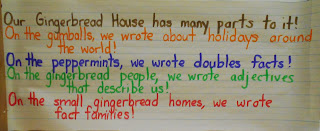 Our Gingerbread House has many parts to it!
On the gumballs, we wrote about holidays around
the world!
On the peppermints, we wrote doubles facts!
On the gingerbread people, we wrote adjectives
that describe us!
On the small gingerbread homes, we wrote
fact families!